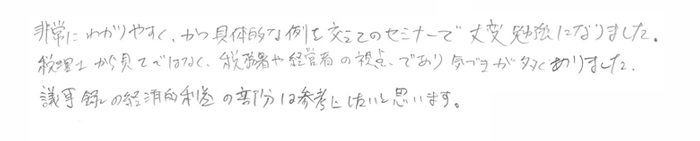 非常にわかりやすく、かつ具体的な例を交えてのセミナーで大変勉強になりました。
税理士から見てではなく、税務署や経営者の視点、であり気づきが多くありました。
議事録の経済的利益の部分は参考にしたいと思います。